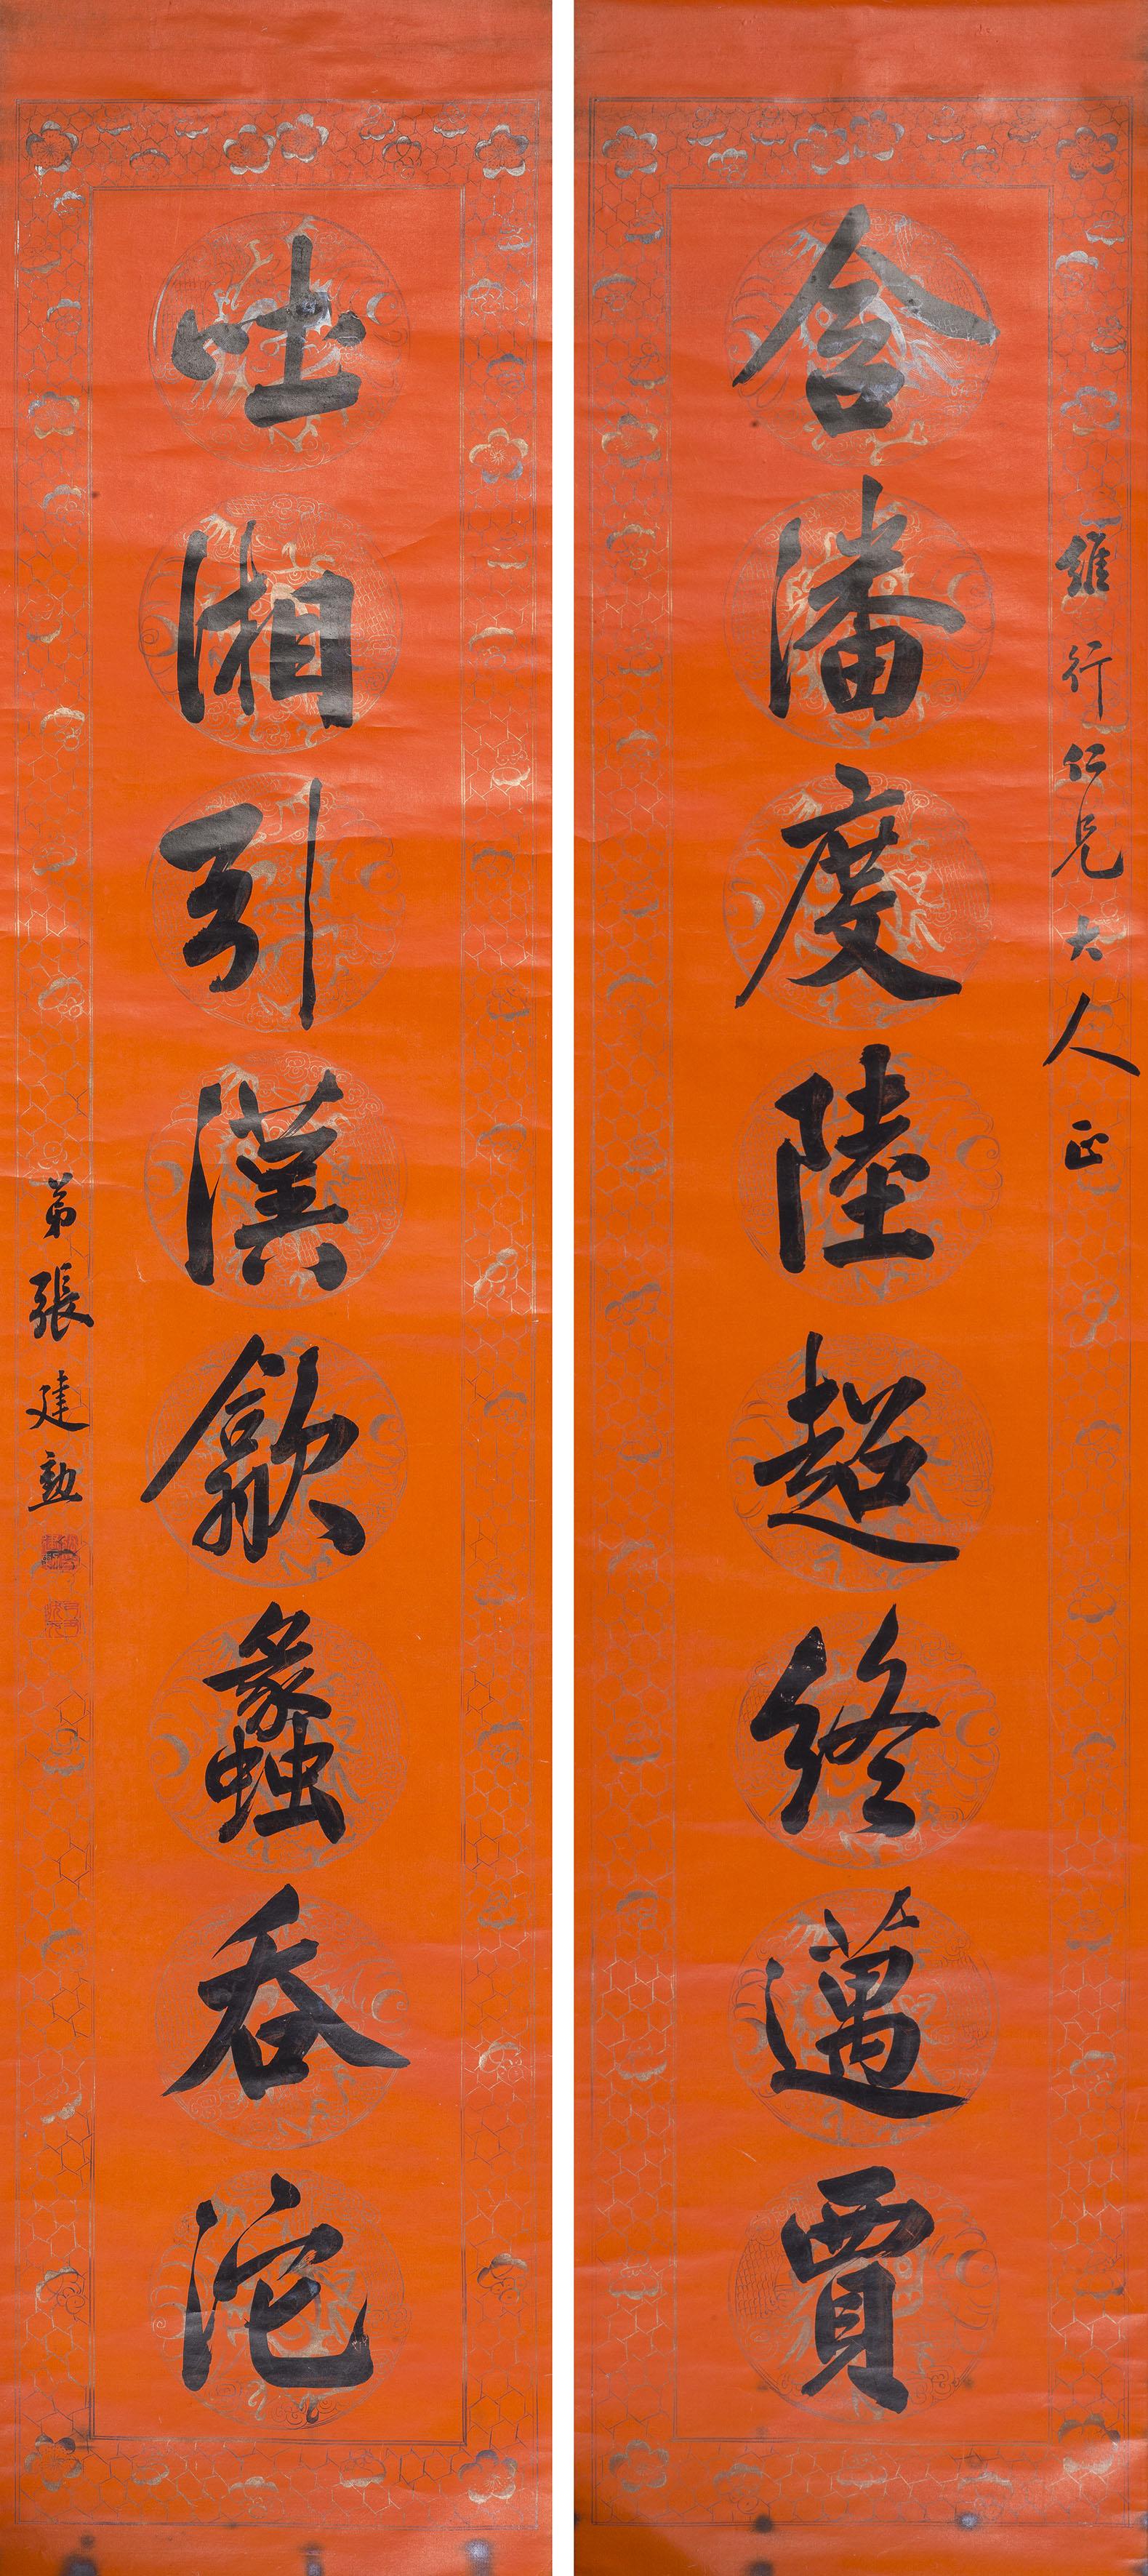 維行仁兄大人正
含潘度陸超終邁賈
吐湘引漢歙蠡吞沱
弟張建勳